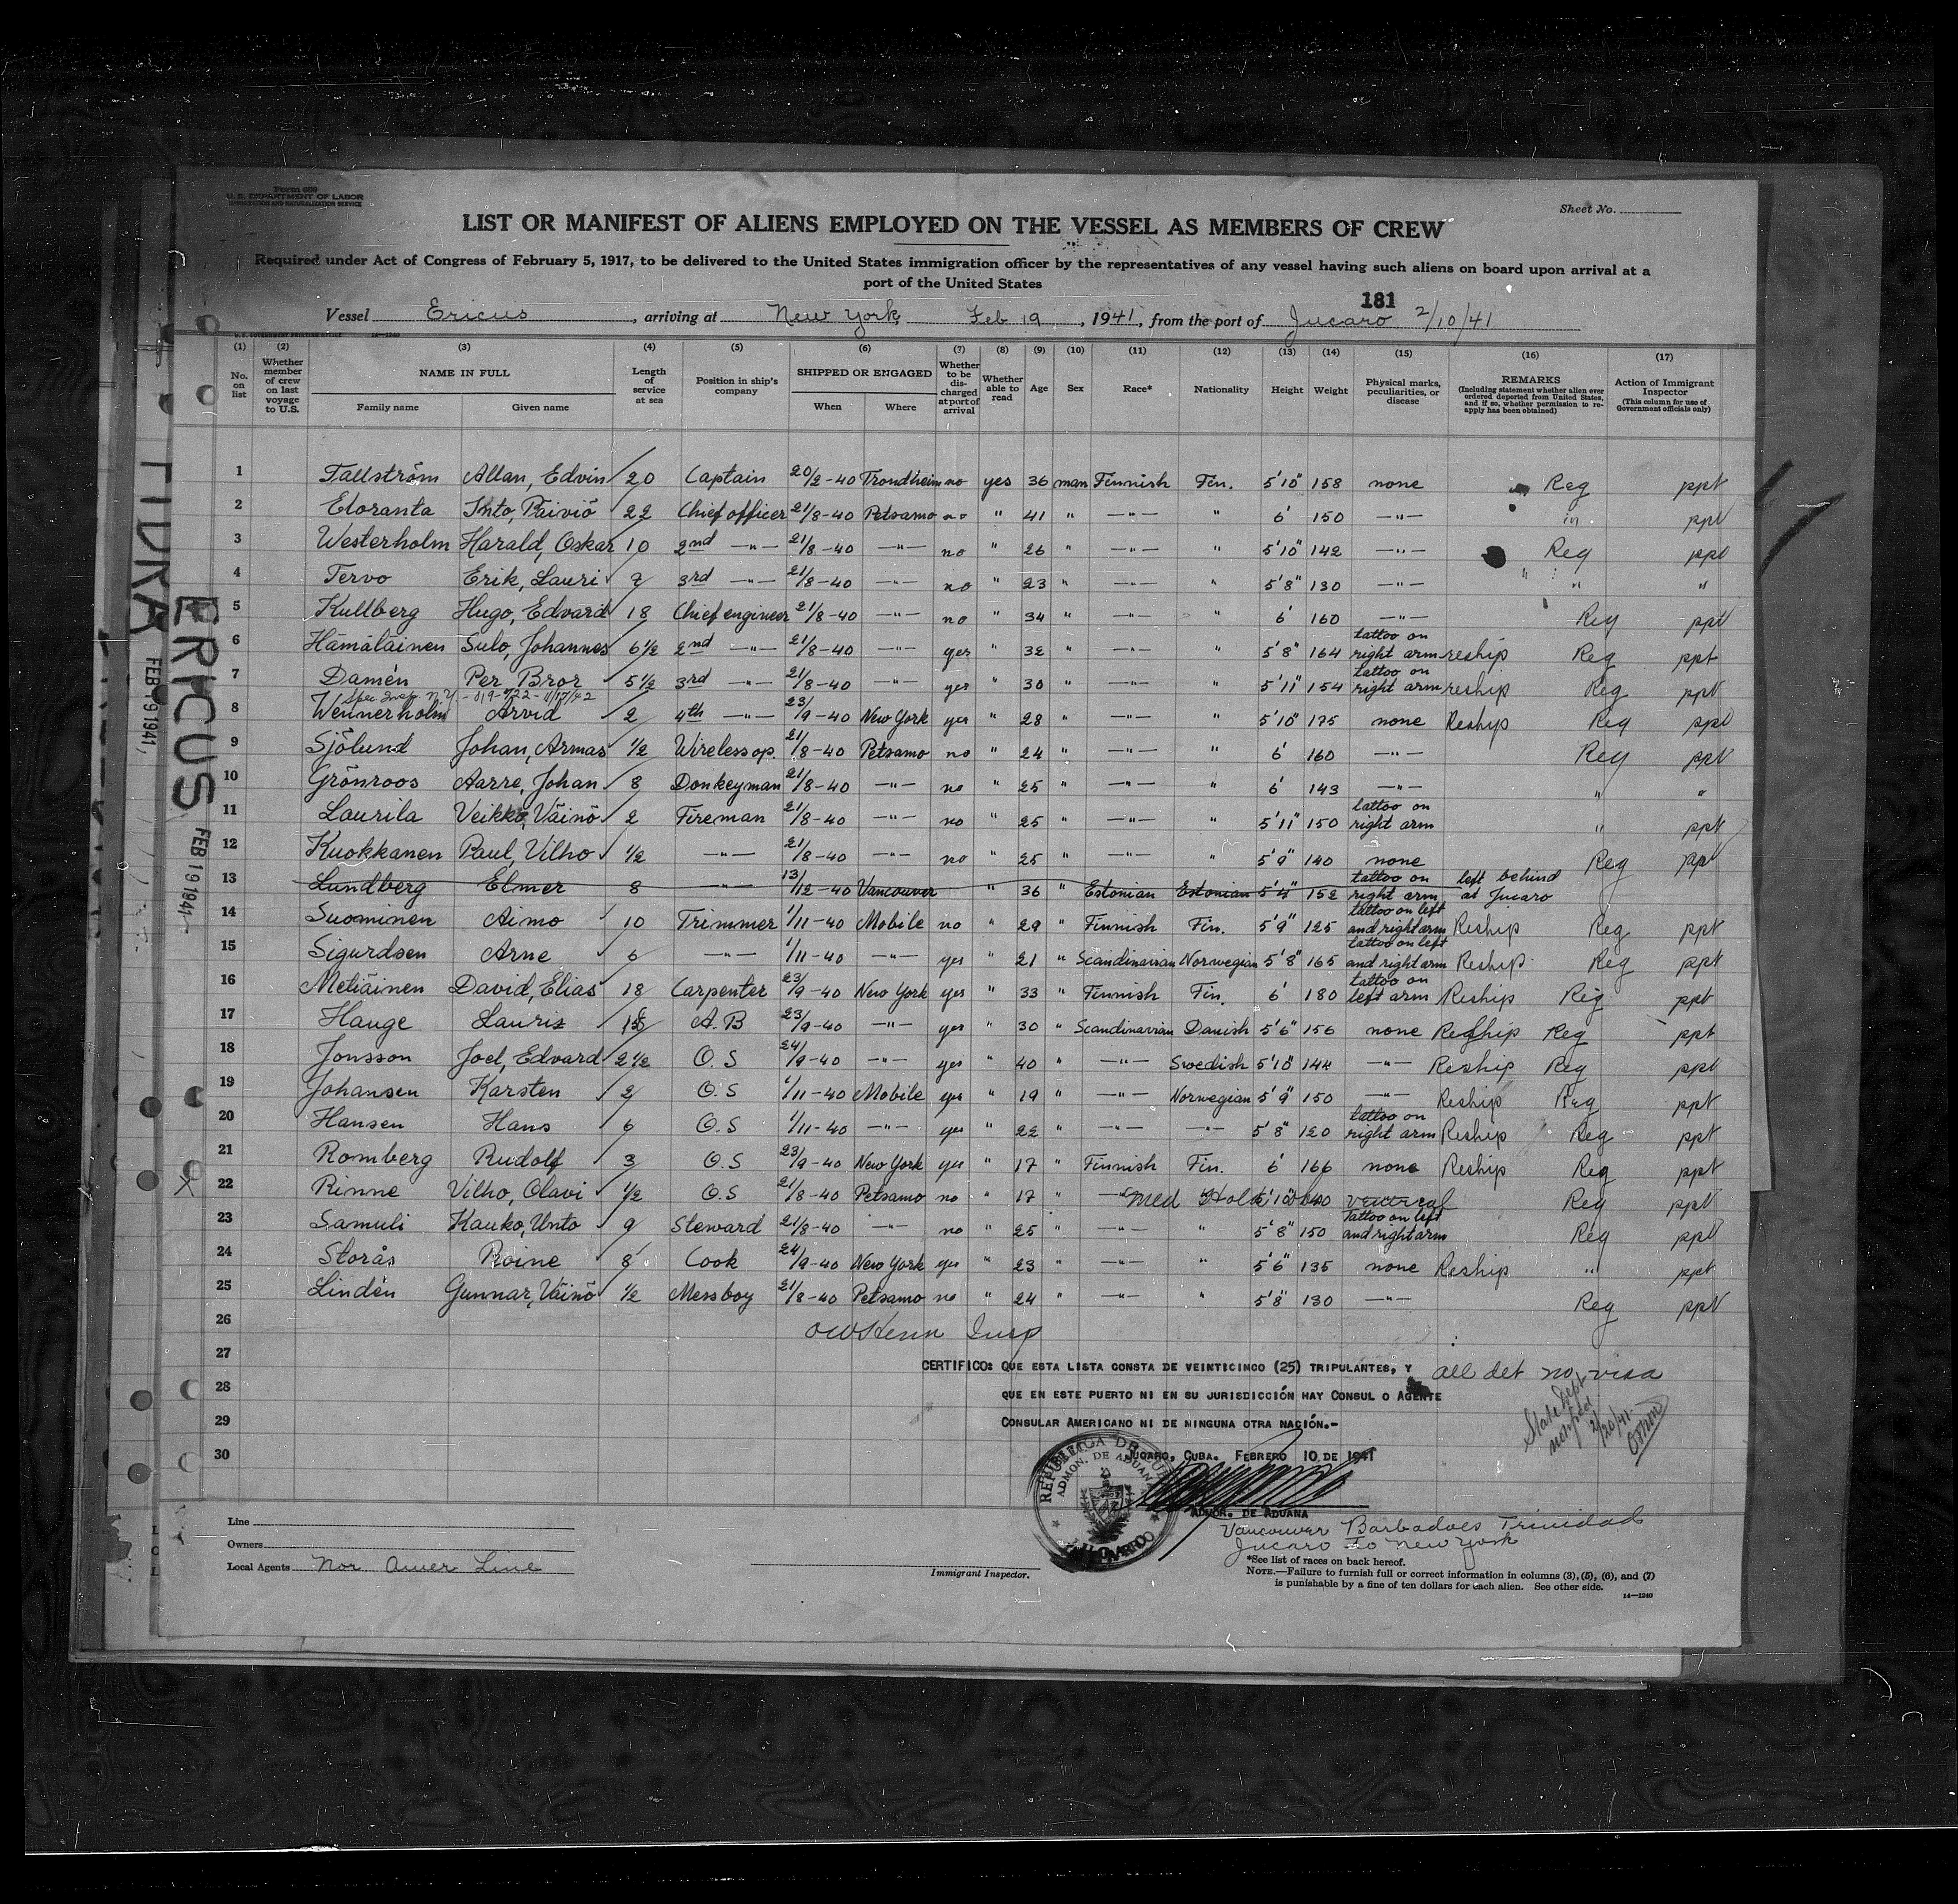 Form 680
U.S. DEPARTMENT OF LABOR
IMMIGRATION AND NATURALIZATION SERVICE
Sheet No.
LIST OR MANIFEST OF ALIENS EMPLOYED ON THE VESSEL AS MEMBERS OF CREW
Required under Act of Congress of February 5, 1917, to be delivered to the United States immigration officer by the representatives of any vessel having such aliens on board upon arrival at a
port of the United States
181
Vessel Ericus, arriving at New York Feb 19, 1941, from the port of Jucaro 2/10/41
(1) (2) (3) (4) (5) (6) (7) (8) (9) (10) (11) (12) (13) (14) (15) (16) (17)
No. on list
Whether member of crew on last voyage to U.S.
NAME IN FULL
Family name Given name
Length of service at sea
Position in ship's company
SHIPPED OR ENGAGED
When Where
Whether to be discharged at port of arrival
Whether able to read
Age
Sex
Race*
Nationality
Height
Weight
Physical marks, peculiarities, or disease
REMARKS
(Including statement whether alien ever ordered deported from United States, and if so, whether permission to reapply has been obtained)
Action of Immigrant Inspector
(This column for use of Government officials only)
1 Tallström Allan, Edvin 20 Captain 20/2-40 Trondheim no yes 36 man Finnish Fin. 5'10" 158 none Reg ppt
2 Eloranta Into, Päiviö 22 Chief officer 21/8-40 Petsamo no " 41 " —"— " 6' 150 —"— in ppt
3 Westerholm Harald, Oskar 10 2nd —"— 21/8-40 —"— no " 26 " —"— " 5'10" 142 —"— Reg ppt
4 Tervo Erik, Lauri 7 3rd —"— 21/8-40 —"— no " 23 " —"— " 5'8" 130 —"— " "
5 Kullberg Hugo, Edvard 18 Chief engineer 21/8-40 —"— no " 34 " —"— " 6' 160 —"— Reg ppt
6 Hämäläinen Sulo, Johannes 6½ 2nd —"— 21/8-40 —"— yes " 32 " —"— " 5'8" 164 tattoo on right arm reship Reg ppt
7 Damén Per Bror 5½ 3rd —"— 21/8-40 —"— yes " 30 " —"— " 5'11" 154 tattoo on right arm reship Reg ppt
8 Wennerholm Arvid 2 4th —"— 23/9-40 New York yes " 28 " —"— " 5'10" 175 none Reship Reg ppt
9 Sjölund Johan, Armas ½ Wireless op. 21/8-40 Petsamo no " 24 " —"— " 6' 160 —"— Reg ppt
10 Grönroos Aarre, Johan 8 Donkeyman 21/8-40 —"— no " 25 " —"— " 6' 143 —"— " "
11 Laurila Veikko, Väinö 2 Fireman 21/8-40 —"— no " 25 " —"— " 5'11" 150 tattoo on right arm " ppt
12 Kuokkanen Paul, Vilho ½ —"— 21/8-40 —"— no " 25 " —"— " 5'9" 140 none Reg ppt
13 Lundberg Elmer 8 —"— 13/12-40 Vancouver " 36 " Estonian Estonian 5'4" 152 tattoo on right arm left behind at Jucaro
14 Suominen Aimo 10 Trimmer 1/11-40 Mobile no " 29 " Finnish Fin. 5'9" 125 tattoo on left and right arm Reship Reg ppt
15 Sigurdsen Arne 6 —"— 1/11-40 —"— yes " 21 " Scandinavian Norwegian 5'8" 165 tattoo on left and right arm Reship Reg ppt
16 Metiäinen David, Elias 18 Carpenter 23/9-40 New York yes " 33 " Finnish Fin. 6' 180 tattoo on left arm Reship Reg ppt
17 Hauge Lauris A.B 23/9-40 —"— yes " 30 " Scandinavian Danish 5'6" 156 none Reship Reg ppt
18 Jonsson Joel, Edvard 2½ O.S 24/9-40 —"— yes " 40 " —"— Swedish 5'10" 144 —"— Reship Reg ppt
19 Johansen Karsten 2 O.S 1/11-40 Mobile yes " 19 " —"— Norwegian 5'9" 150 —"— Reship Reg ppt
20 Hansen Hans 6 O.S 1/11-40 —"— yes " 22 " —"— —"— 5'8" 120 tattoo on right arm Reship Reg ppt
21 Romberg Rudolf 3 O.S 23/9-40 New York yes " 17 " Finnish Fin. 6' 166 none Reship Reg ppt
22 Rinne Vilho, Olavi ½ O.S 21/8-40 Petsamo no " 17 " —"— Med Hold 5'10" 140 venereal Reg ppt
23 Samuli Kauko, Unto 9 Steward 21/8-40 —"— no " 25 " —"— " 5'8" 150 tattoo on left and right arm Reg ppt
24 Storås Roine 8 Cook 24/9-40 New York yes " 23 " —"— " 5'6" 135 none Reship " ppt
25 Lindén Gunnar, Väinö ½ Messboy 21/8-40 Petsamo no " 24 " —"— " 5'8" 130 —"— Reg ppt
26 Insp
27
28
29
30
CERTIFICO: QUE ESTA LISTA CONSTA DE VEINTICINCO (25) TRIPULANTES, Y
QUE EN ESTE PUERTO NI EN SU JURISDICCIÓN HAY CONSUL O AGENTE
CONSULAR AMERICANO NI DE NINGUNA OTRA NACIÓN.-
JUCARO, CUBA. FEBRERO 10 DE 1941
ADMOR. DE ADUANA
all det no visa
State Dept
2/20/41
REPUBLICA DE CUBA
ADMON. DE ADUANA
Vancouver Barbadoes Trinidad
Jucaro to New York
Line
Owners
Local Agents Nor Amer Line
Immigrant Inspector.
*See list of races on back hereof.
NOTE.—Failure to furnish full or correct information in columns (3), (5), (6), and (7)
is punishable by a fine of ten dollars for each alien. See other side.
14—1240
ERICUS FEB 19 1941
TIDRA FEB 19 1941